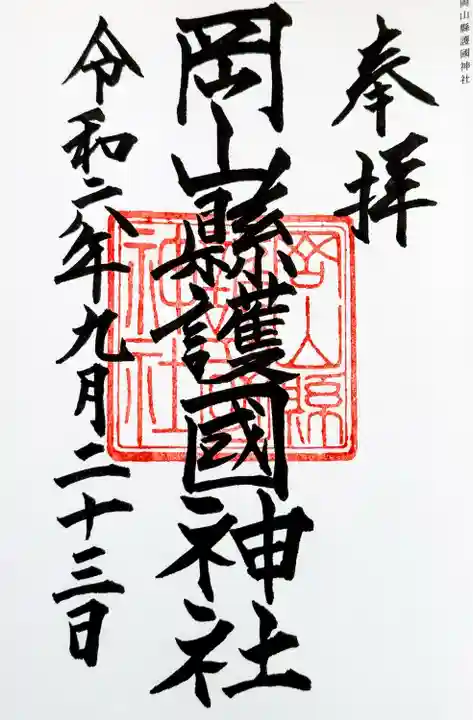 岡山縣護國神社
奉拝
岡山縣護國神社
令和二年九月二十三日
岡山縣
護國
神社